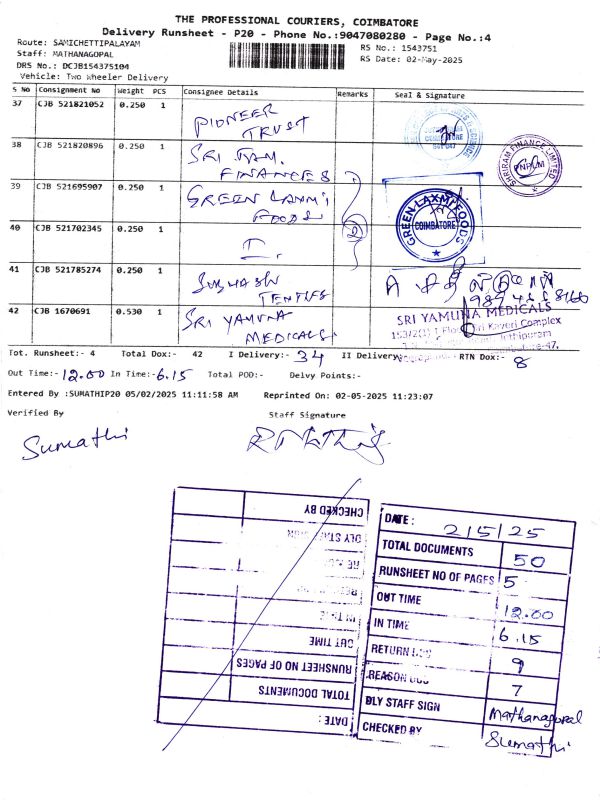 THE PROFESSIONAL COURIERS, COIMBATORE
Delivery Runsheet - P20 - Phone No.:9047080280 - Page No.:4
Route: SAMICHETTIPALAYAM
Staff: MATHANAGOPAL
RS No.: 1543751
DRS No.: DCJB154375104
RS Date: 02-May-2025
Vehicle: Two Wheeler Delivery
S No Consignment No Weight PCS Consignee Details Remarks Seal & Signature
37 CJB 521821052 0.250 1 PIONEER TRUST
38 CJB 521820896 0.250 1 SRI RAM. FINANCES
SHRIRAM FINANCE LIMITED
39 CJB 521695907 0.250 1 GREEN LAXMI FOODS
GREEN LAXMI FOODS
COIMBATORE
40 CJB 521702345 0.250 1
2
41 CJB 521785274 0.250 1 TEXTILES
42 CJB 1670691 0.530 1 SRI YAMUNA MEDICALS.
SRI YAMUNA MEDICALS
153/2(1) 1 Floor Sri Kaveri Complex
Tot. Runsheet:- 4 Total Dox:- 42 I Delivery:- 34 II Delivery:- RTN Dox:- 8
Out Time:- 12.00 In Time:- 6.15 Total POD:- Delvy Points:-
Entered By :SUMATHIP20 05/02/2025 11:11:58 AM Reprinted On: 02-05-2025 11:23:07
Verified By Staff Signature
Sumathi
DATE : 2/5/25
TOTAL DOCUMENTS 50
RUNSHEET NO OF PAGES 5
OUT TIME 12.00
IN TIME 6.15
RETURN 9
REASON 7
DLY STAFF SIGN Mathanagopal
CHECKED BY Sumathi
CHECKED BY
DLY STAFF SIGN
IN TIME
OUT TIME
RUNSHEET NO OF PAGES
TOTAL DOCUMENTS
DATE :